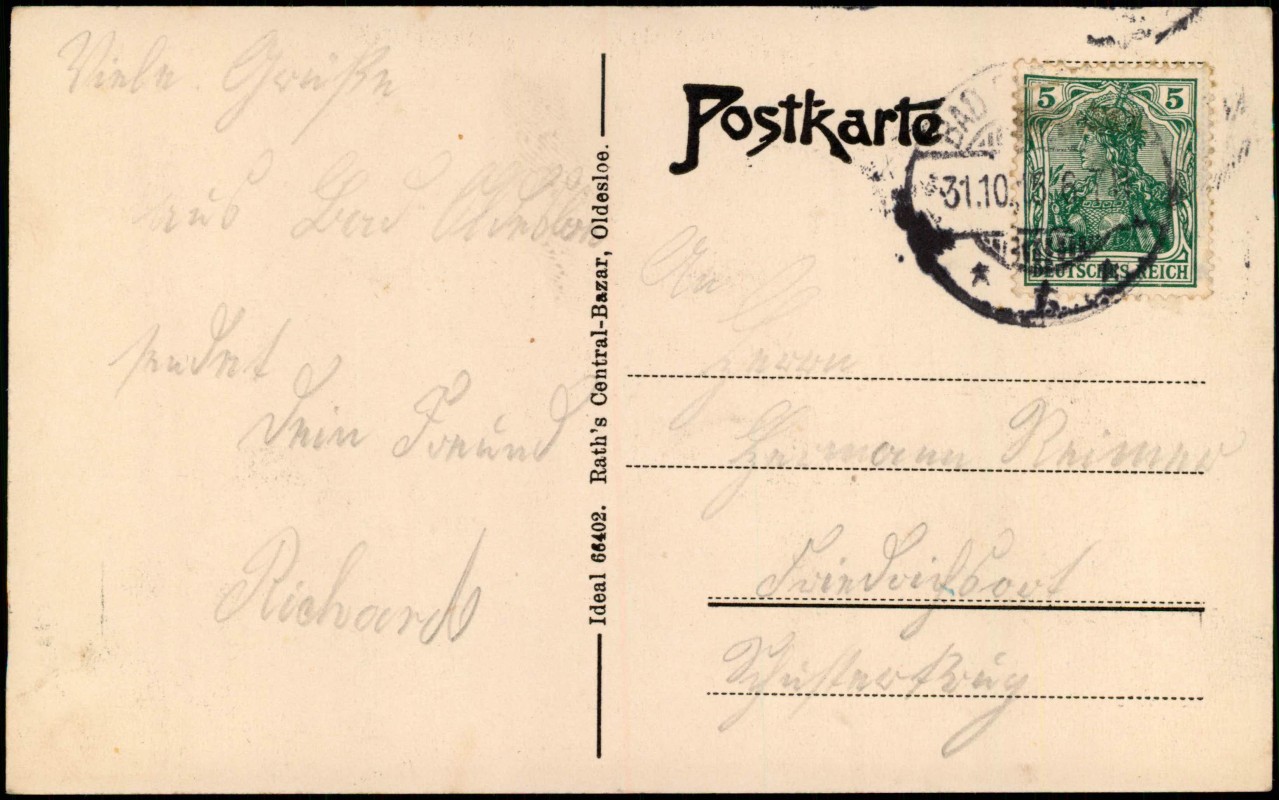 Viele Grüße
aus Bad Oldesloe
sendet
Dein Freund
Richard
Ideal 66402. Rath's Central-Bazar, Oldesloe.
Postkarte
BAD
31.10.13.6-7
5 5
DEUTSCHES REICH
An
Herrn
Hermann Reimer
Friedrichsort
Schusterkrug